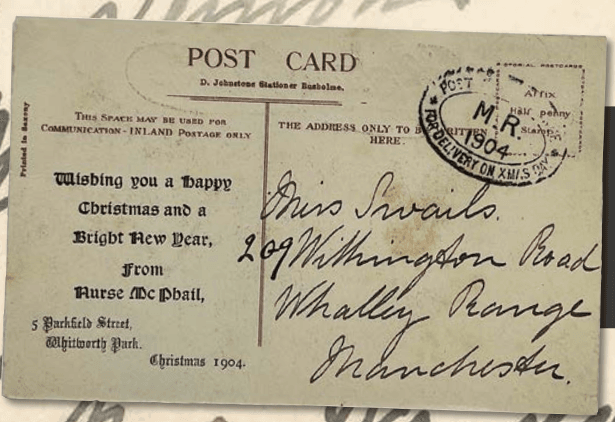 POST CARD
D. Johnstone Stationer Rusholme.
Printed in Saxony
THIS SPACE MAY BE USED FOR
COMMUNICATION - INLAND POSTAGE ONLY
THE ADDRESS ONLY TO BE WRITTEN
HERE.
SPECIAL POSTCARDS
AFFIX
Half penny
Stamp
POST
M.R.
1904
FOR DELIVERY ON XMAS DAY
Wishing you a Happy
Christmas and a
Bright New Year,
From
Nurse McPhail,
5 Parkfield Street,
Whitworth Park.
Christmas 1904.
Miss Swails.
209 Withington Road
Whalley Range
Manchester.